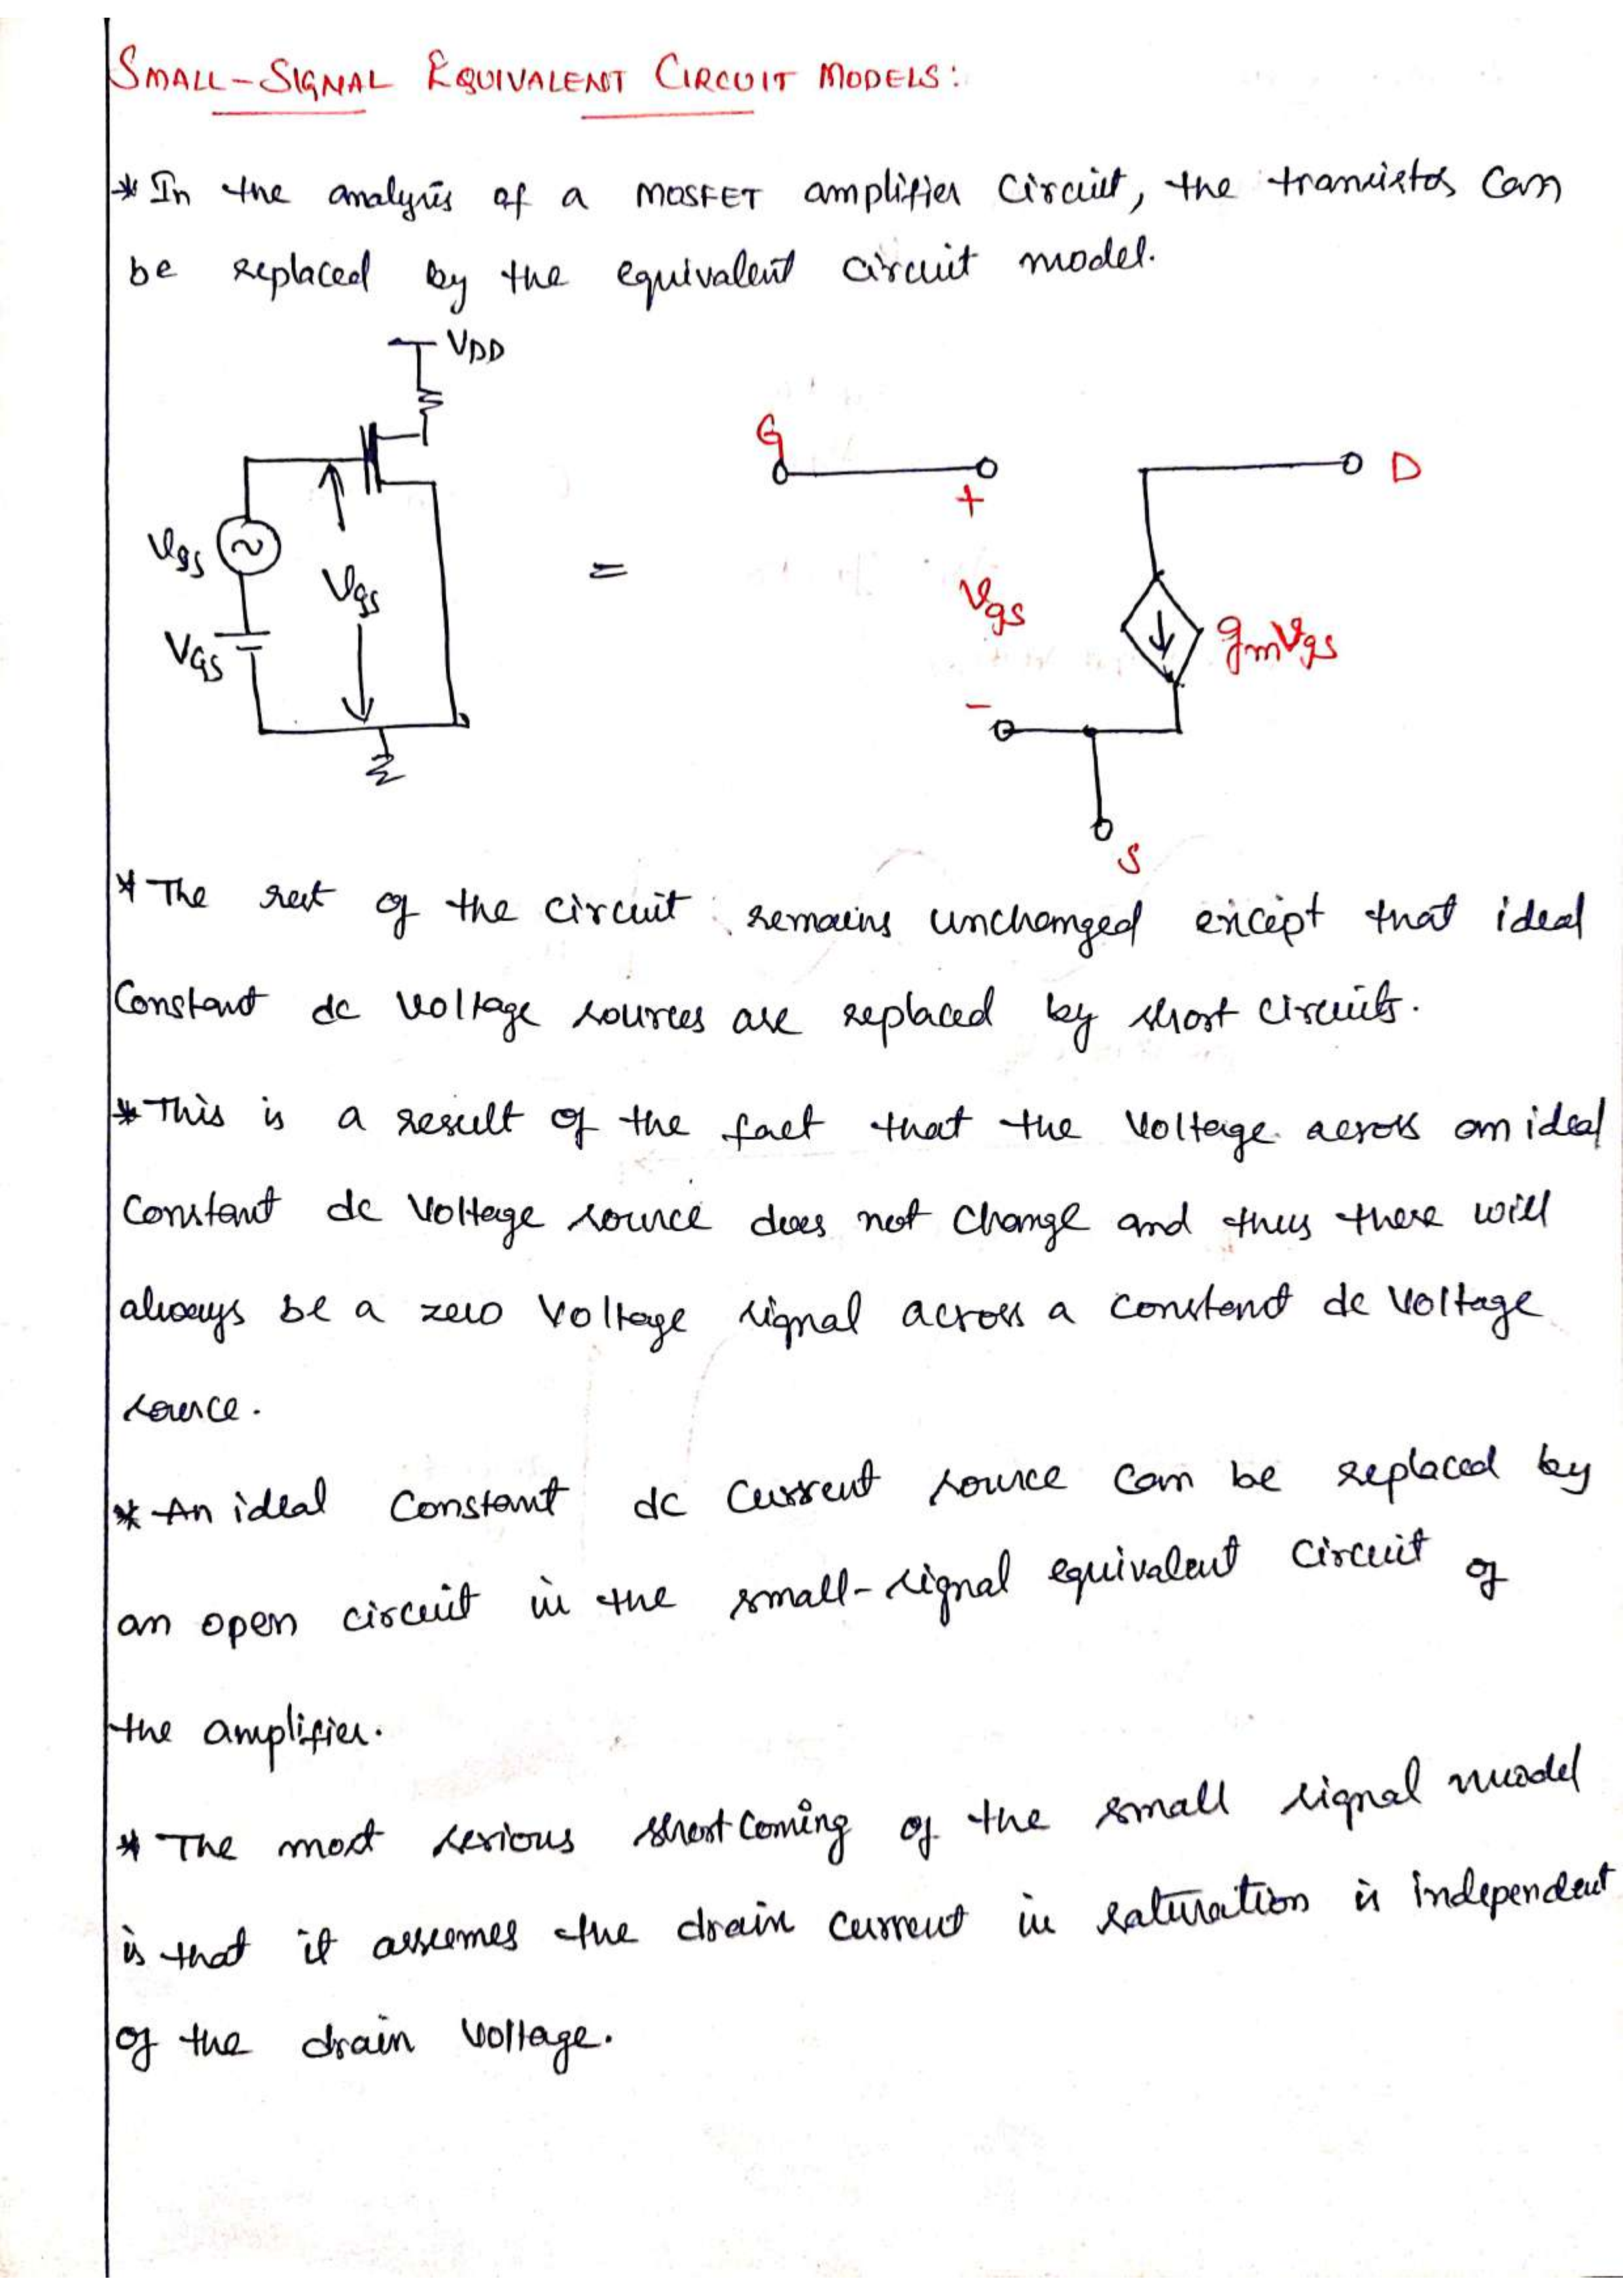 SMALL-SIGNAL EQUIVALENT CIRCUIT MODELS:
* In the analysis of a MOSFET amplifier circuit, the transistor can
be replaced by the equivalent circuit model.
VDD
G
D
+
vgs
vgs
=
vgs
gmvgs
VGS
-
S
* The rest of the circuit remains unchanged except that ideal
Constant dc voltage sources are replaced by short circuits.
* This is a result of the fact that the Voltage across an ideal
Constant dc Voltage source does not change and thus there will
always be a zero Voltage signal across a constant dc Voltage
source.
* An ideal Constant dc Current source can be replaced by
an open circuit in the small-signal equivalent circuit of
the amplifier.
* The most serious shortcoming of the small signal model
is that it assumes the drain current in saturation is independent
of the drain voltage.